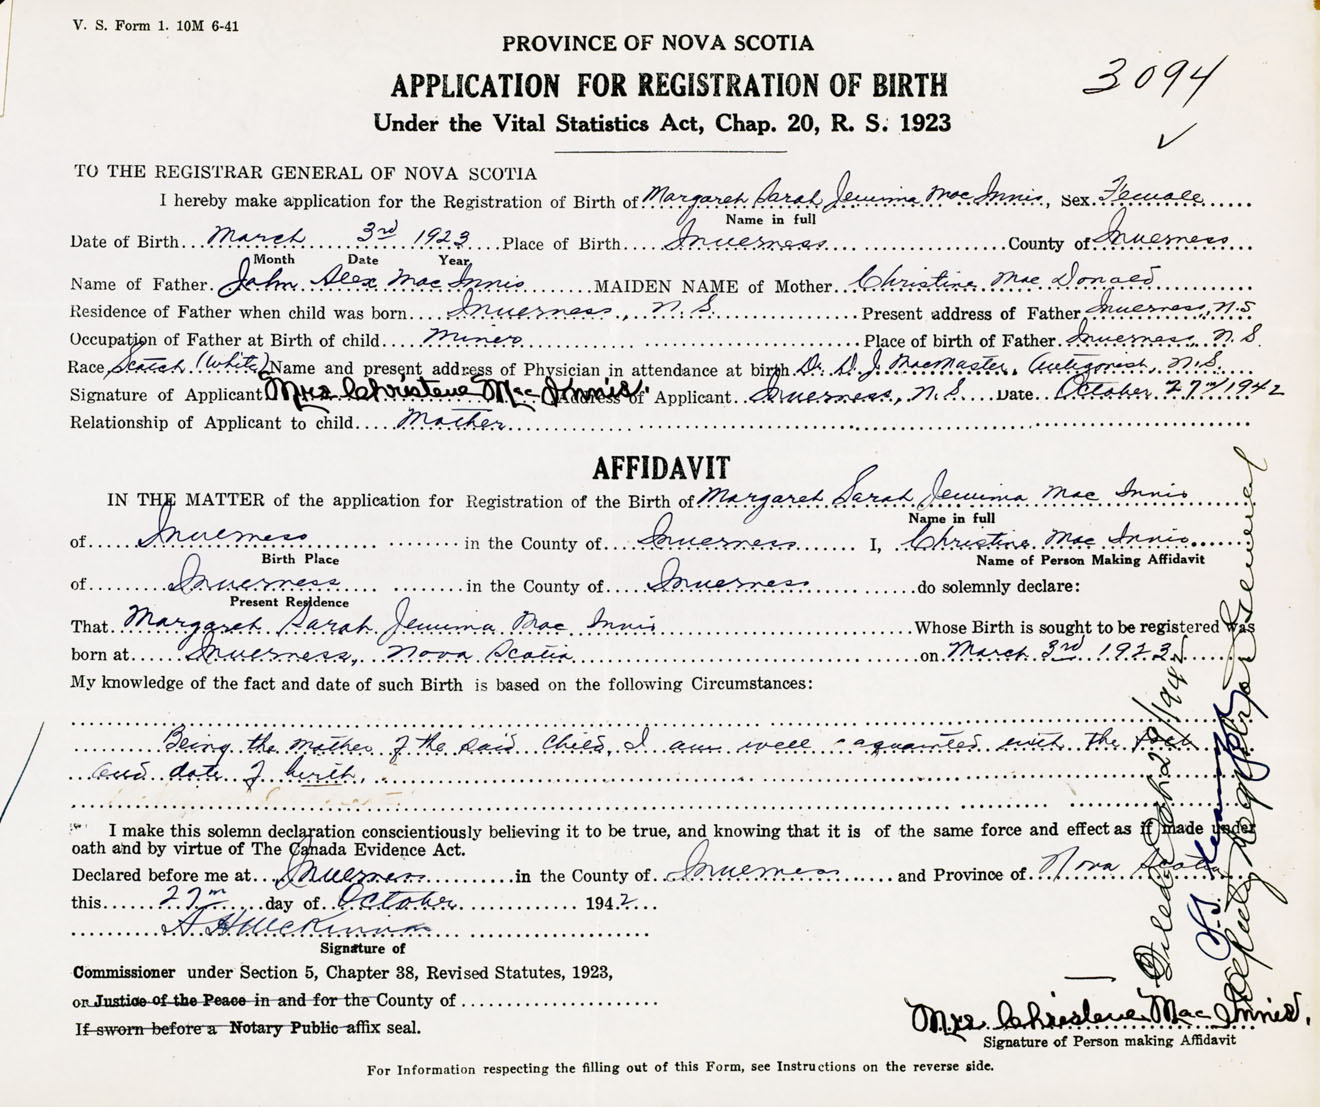 V. S. Form 1. 10M 6-41
PROVINCE OF NOVA SCOTIA
3094
APPLICATION FOR REGISTRATION OF BIRTH
Under the Vital Statistics Act, Chap. 20, R. S. 1923
TO THE REGISTRAR GENERAL OF NOVA SCOTIA
I hereby make application for the Registration of Birth of Margaret Sarah Jemima MacInnis, Sex Female
Name in full
Date of Birth March 3rd 1923 Place of Birth Inverness County of Inverness
Month Date Year
Name of Father John Alex MacInnis MAIDEN NAME of Mother Christina MacDonald
Residence of Father when child was born Inverness, N.S. Present address of Father Inverness, N.S
Occupation of Father at Birth of child Miner Place of birth of Father Inverness, N.S.
Race Scotch (White) Name and present address of Physician in attendance at birth Dr. D. J. MacMaster, Antigonish, N.S.
Signature of Applicant Mrs Christeve MacInnis. Address of Applicant Inverness, N.S. Date October 27th/1942
Relationship of Applicant to child Mother
AFFIDAVIT
IN THE MATTER of the application for Registration of the Birth of Margaret Sarah Jemima Mac Innis
Name in full
of Inverness in the County of Inverness I, Christina Mac Innis
Birth Place Name of Person Making Affidavit
of Inverness in the County of Inverness do solemnly declare:
Present Residence
That Margaret Sarah Jemima Mac Innis Whose Birth is sought to be registered was
born at Inverness, Nova Scotia on March 3rd 1923
My knowledge of the fact and date of such Birth is based on the following Circumstances:
Being the Mother of the said Child, I am well aquainted with the fact
and date of birth.
I make this solemn declaration conscientiously believing it to be true, and knowing that it is of the same force and effect as if made under
oath and by virtue of The Canada Evidence Act.
Declared before me at Inverness in the County of Inverness and Province of Nova Scotia
this 27th day of October 1942
Signature of
Commissioner under Section 5, Chapter 38, Revised Statutes, 1923,
or Justice of the Peace in and for the County of
If sworn before a Notary Public affix seal.
Mrs. Christeve MacInnis.
Signature of Person making Affidavit
For Information respecting the filling out of this Form, see Instructions on the reverse side.
Filed Oct 29/1942
Deputy Registrar General